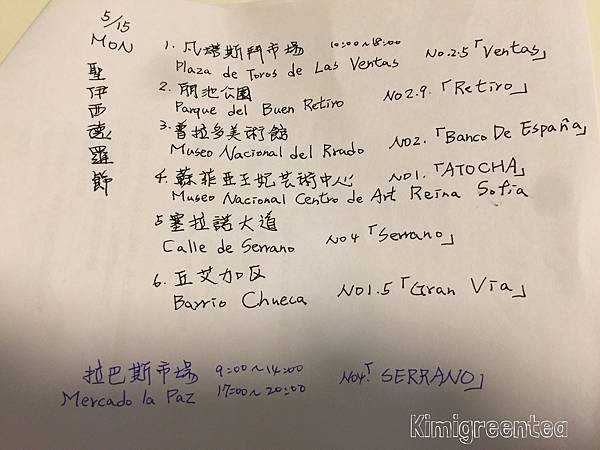 5/15
MON
聖伊西德羅節
1. 凡塔斯鬥市場 10:00~18:00 NO.2.5「Ventas」
Plaza de Toros de Las Ventas
2. 麗池公園 NO2.9.「Retiro」
Parque del Buen Retiro
3. 普拉多美術館 NO2.「Banco De España」
Museo Nacional del Prado
4. 蘇菲亞王妃芸術中心 NO1.「ATOCHA」
Museo Nacional Centro de Art Reina Sofia
5 塞拉諾大道
Calle de Serrano NO4「Serrano」
6. 丘艾加区
Barrio Chueca NO1.5「Gran Via」
拉巴斯市場 9:00~14:00 NO4.「SERRANO」
Mercado la Paz 17:00~20:00
Kimigreentea